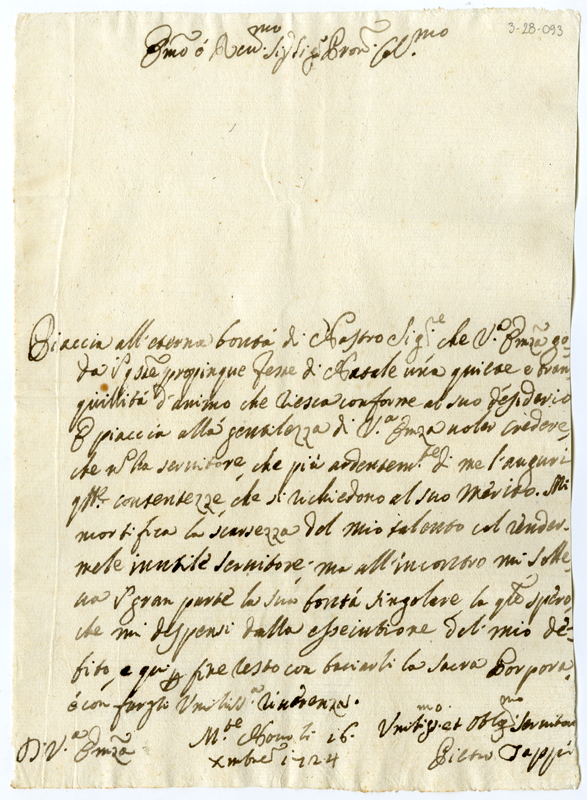 3-28-093
Em̃o é Reu.mo Sig.
Piaccia all'eterna bontá di Nostro Sig.re che V.a Em̃za go
da questé propinque feste di Natale una quiete e tran
quillitá d'animo che riesca conforme al suo desiderio
E piaccia alla gentilezza di V.a Emza uoler credere,
che servitore, che piú ardentem.te di me l'auguri
contentezze che si richiedono al suo merito. Mi
mortifica la scarsezza del mio talento col render
mele inutile seruitore. ma all'incontro mi solle
ua gran parte la sua bontá singolare la spero,
che mi dispensi dalla essecutione del mio de
bito, e qui fine resto con baciarli la sacra Porpora.
é con fargli Umiliss.a riuerenza.
Di V.a Em̃za
M.te Nouo li 16.
xmbre 1724
Umiliss.mo et Obligmo Seruitore
Pietro